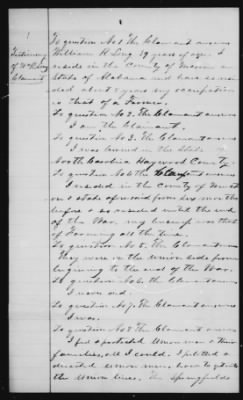 1
Testimony
of Wm R Long
Claimant
To question No 1 the Claimant answers
William R. Long 59 years of age. I
reside in the County of Marion
State of Alabama and have so resi
ded about 9 years my occupation
is that of a Farmer.
To question No 2. the Claimant answers
I am the Claimant.
To question No 3. the Claimant answers
I was borned in the State of
North Carolina Haywood County.
To question No 4 the Claimant answers
I resided in the County of
State from six months
before until the end
of the War, my business was that
of Farming all the time.
To question No 5. the Claimant answers
They were on the Union side from
beginning to the end of the War.
To question No 6. the Claimant answers
I never did.
To question No 7. the Claimant answers
I was.
To question No 8 the Claimant answers
I protected Union men & their
families, all I could. I piloted &
directed union men how to get to
the Union lines. The